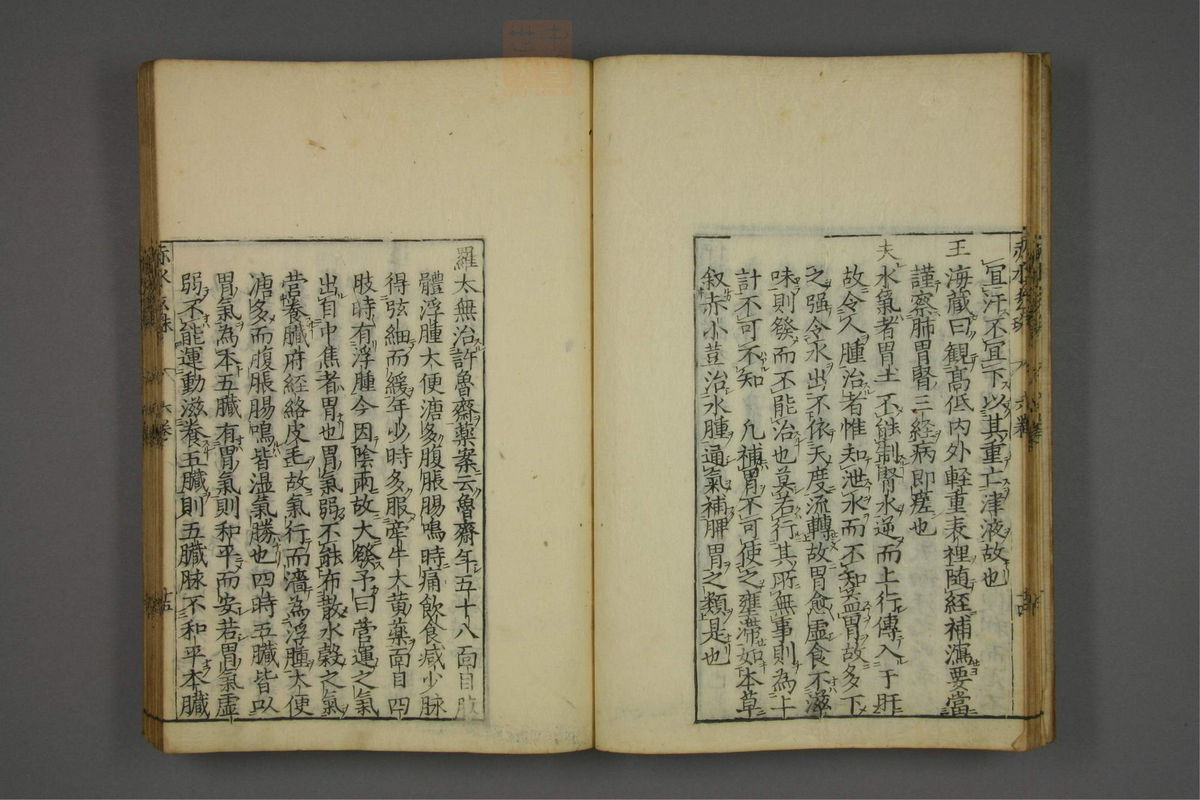 宜汗不宜下以其重亡津液故也
王海藏曰観髙低内外輕重表裡随經補瀉要當
謹察肺胃腎三経病即瘥也
夫水氣者胃土不能制腎水逆而上行傳入于肝
故令人腫治者惟知泄水而不知益胃故多下
之强令水出不依天度流轉故胃愈虚食不滋
味則發而不能治也莫若行其所無事則為上
計不可不知凡補胃不可使之壅滯如本草
叙赤小荳治水腫通氣補脾胃之類是也
羅太無治許魯齋藥案云魯齋年五十八面目肢
體浮腫大便溏多腹脹腸鳴時痛飲食減少脉
得弦細而緩年少時多服牽牛大黄藥面目四
肢時有浮腫今因陰雨故大發予曰營運之氣
出自中焦者胃也胃氣弱不能布散水穀之氣
營養臟府経絡皮毛故氣行而濇為浮腫大便
溏多而腹脹腸鳴皆湿氣勝也四時五臟皆以
胃氣為本五臟有胃氣則和平而安若胃氣虚
弱不能運動滋養五臟則五臟脉不和平本臟
赤水玄珠
六卷